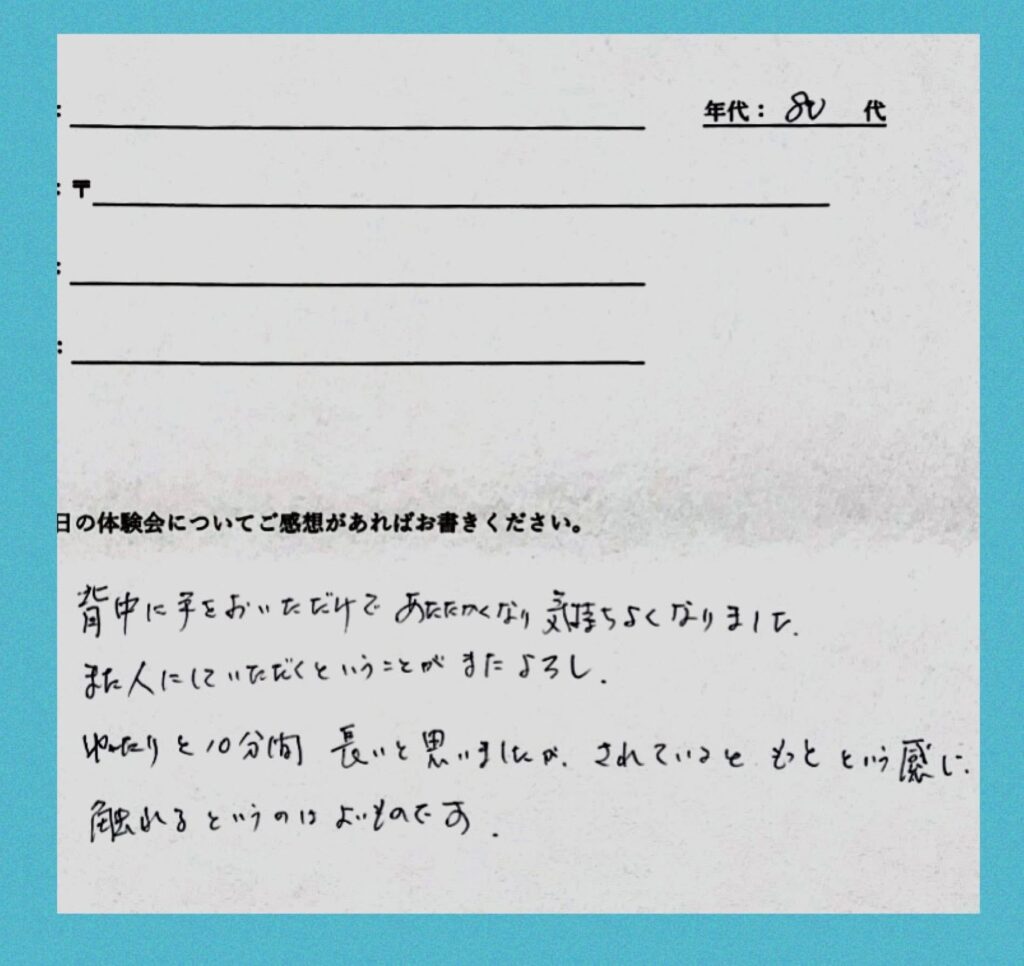 : 年代: 80 代
: 〒
:
:
日の体験会についてご感想があればお書きください。
背中に手をおいただけであたたかくなり気持ちよくなりました.
また人にしていただくということがまたよろし.
ゆったりと10分間 長いと思いましたが、されていると もっと という感じ.
触れるというのはよいものです.